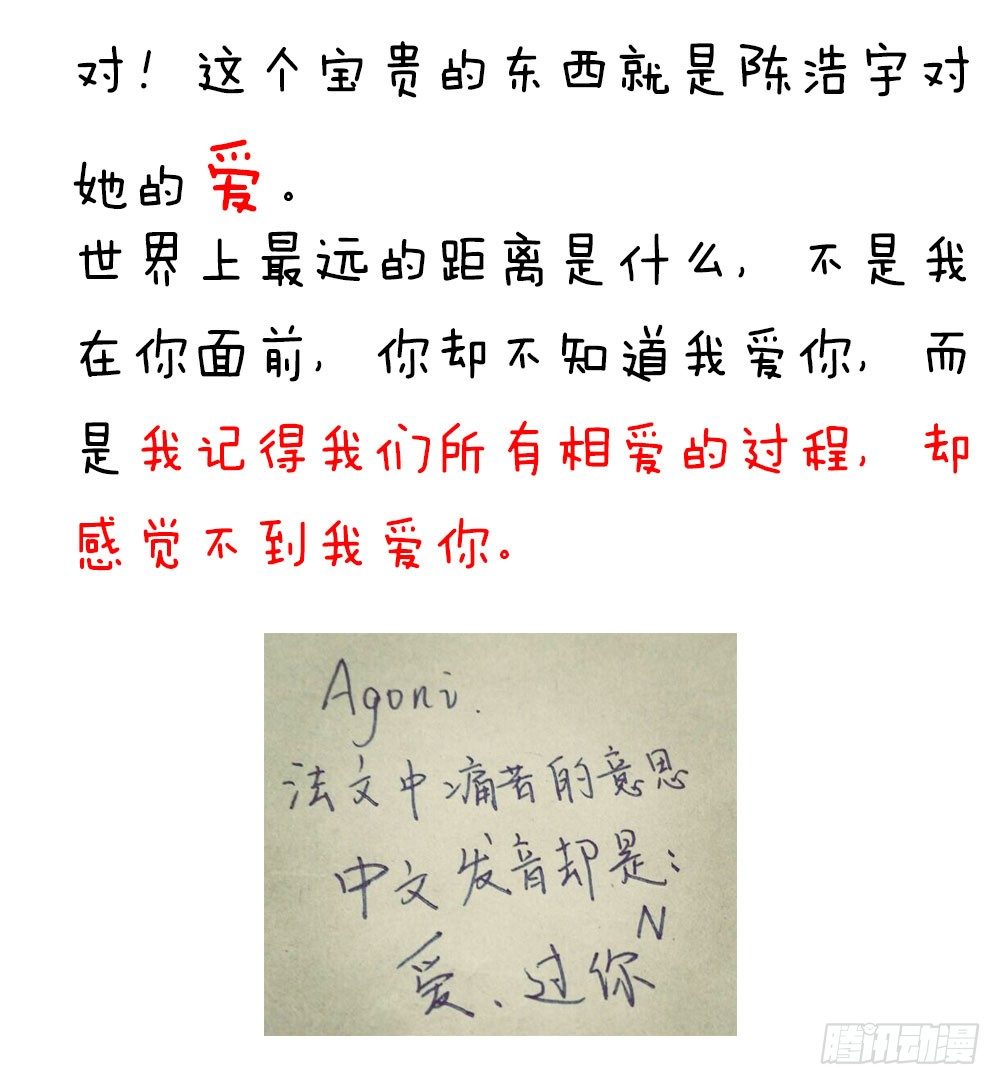 对！这个宝贵的东西就是陈浩宇对
她的爱。
世界上最远的距离是什么，不是我
在你面前，你却不知道我爱你，而
是我记得我们所有相爱的过程，却
感觉不到我爱你。
Agoni.
法文中痛苦的意思
中文发音却是：
爱、过你N
腾讯动漫